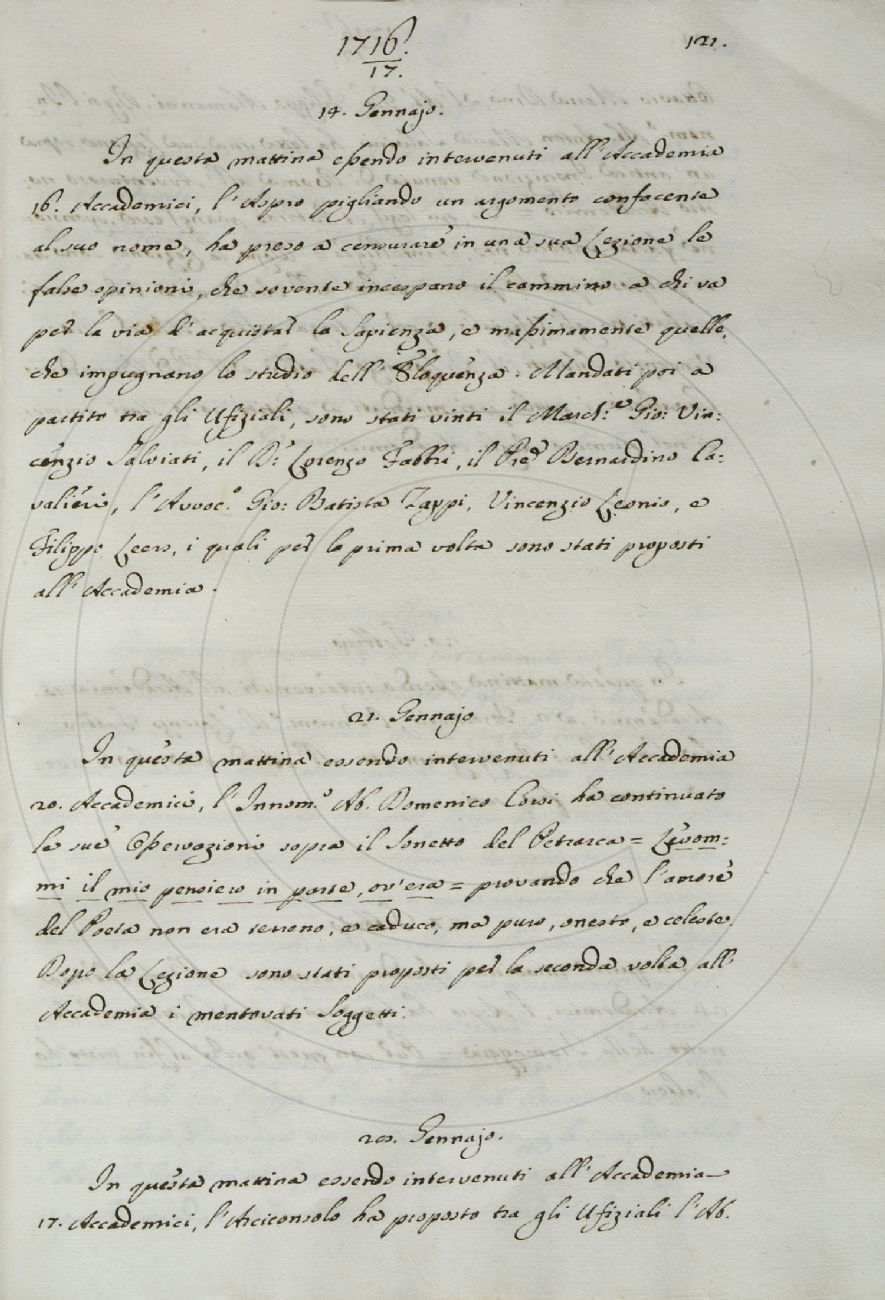 1716.
17.
121.
14. Gennajo.
In questa mattina essendo intervenuti all'Accademia
16. Accademici, l'Aspro pigliando un argomento confacente
al suo nome, ha preso a censurare in una sua Lezione le
false opinioni, che sovente inceppano il cammino a chi va
per la via d'acquistar la Sapienza, e massimamente quelle,
che impugnano lo studio dell'Eloquenza. Mandati poi a
partito tra gli Ufiziali, sono stati vinti il March.e Gio: Vin:
cenzio Salviati, il D.r Lorenzo Fabbri, il Pre Bernardino Ca:
valieri, l'Avvoc.o Gio: Batista Zappi, Vincenzio Leonio, e
Filippo Leers, i quali per la prima volta sono stati proposti
all'Accademia.
21. Gennajo
In questa mattina essendo intervenuti all'Accademia
20. Accademici, l'Innom.o Ab. Domenico Corsi ha continuato
le sue Osservazioni sopra il Sonetto del Petrarca = Levom:
mi il mio pensiero in parte, ov'era = provando che l'amore
del Poeta non era terreno, e caduco, ma puro, onesto, e celeste.
Dopo la Lezione sono stati proposti per la seconda volta all'
Accademia i mentovati Soggetti.
Gennajo.
In questa mattina essendo intervenuti all'Accademia
17. Accademici, l'Arciconsolo ha proposto tra gli Ufiziali l'Ab.